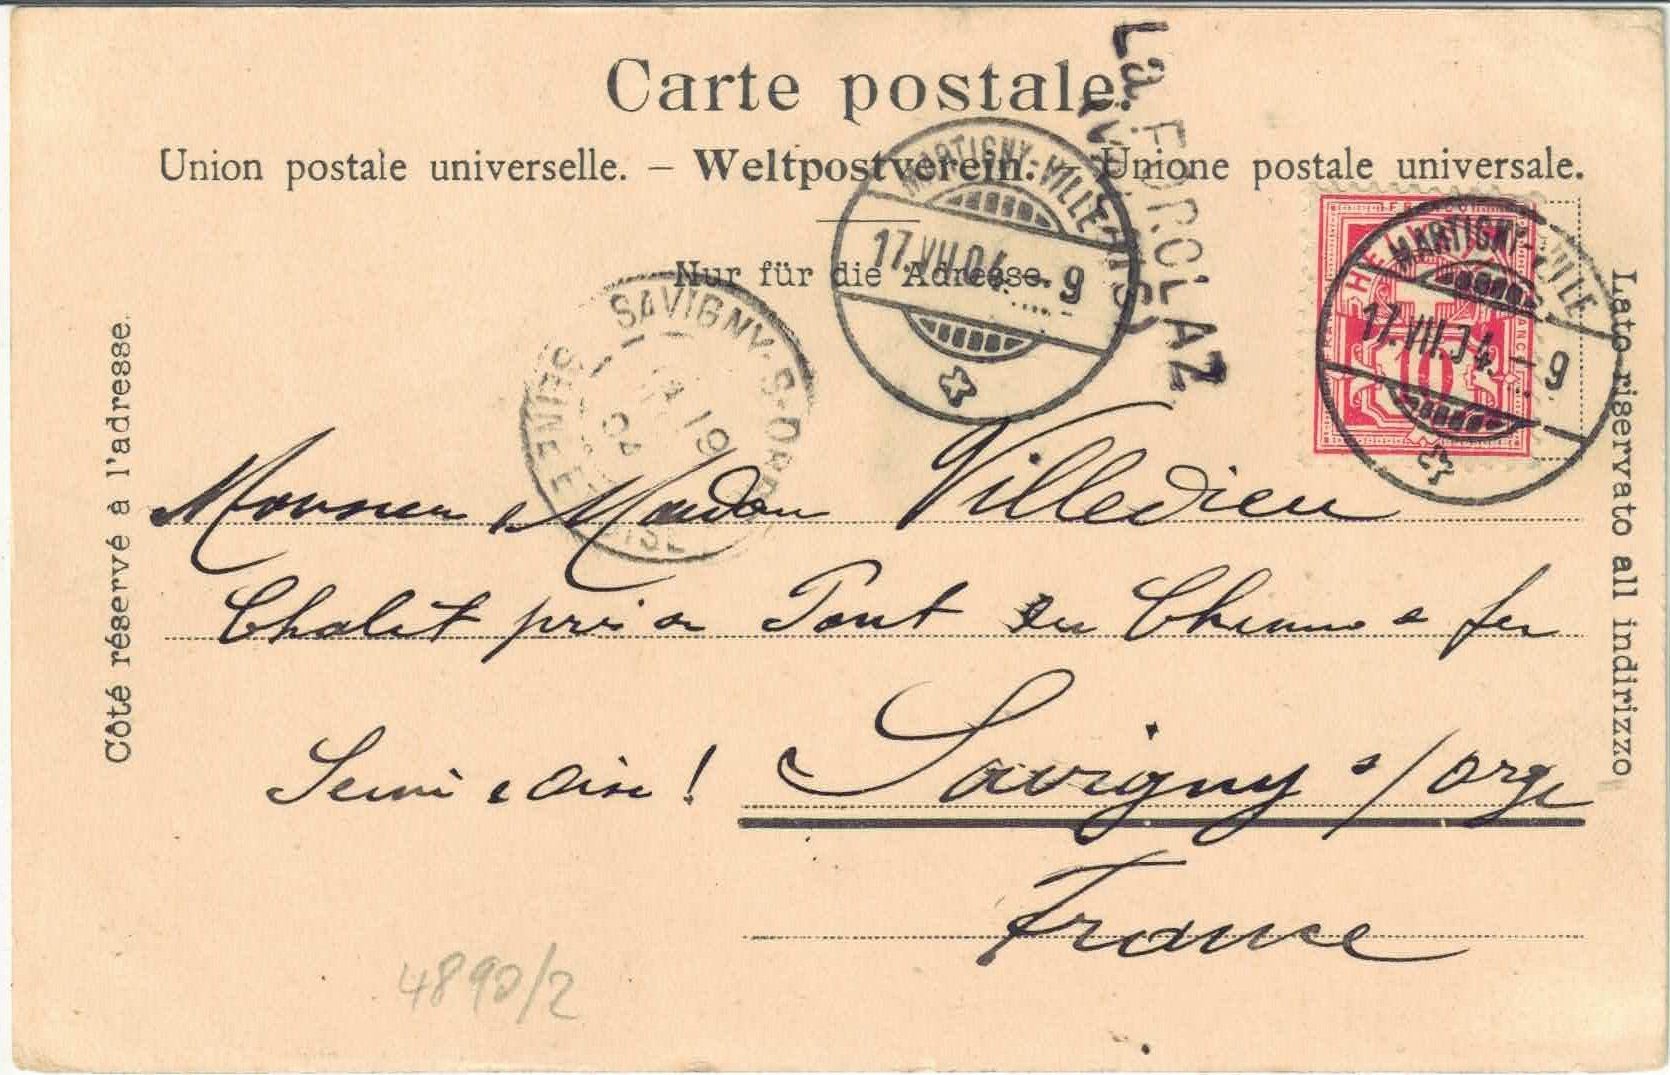 Carte postale.
Union postale universelle. – Weltpostverein. – Unione postale universale.
Nur für die Adresse.
Côté réservé à l'adresse.
Lato riservato all indirizzo
La FORCLAZ
MARTIGNY-VILLE
17.VII.04.–9
HELVETIA
10
MARTIGNY-VILLE
17.VII.04.–9
SAVIGNY-S-ORGE
19
04
SEINE ET OISE
Monsieur & Madame Villedieu
Chalet près du Pont du Chemin de fer
Savigny s/ Orge
Seine & Oise !
France
4890/2